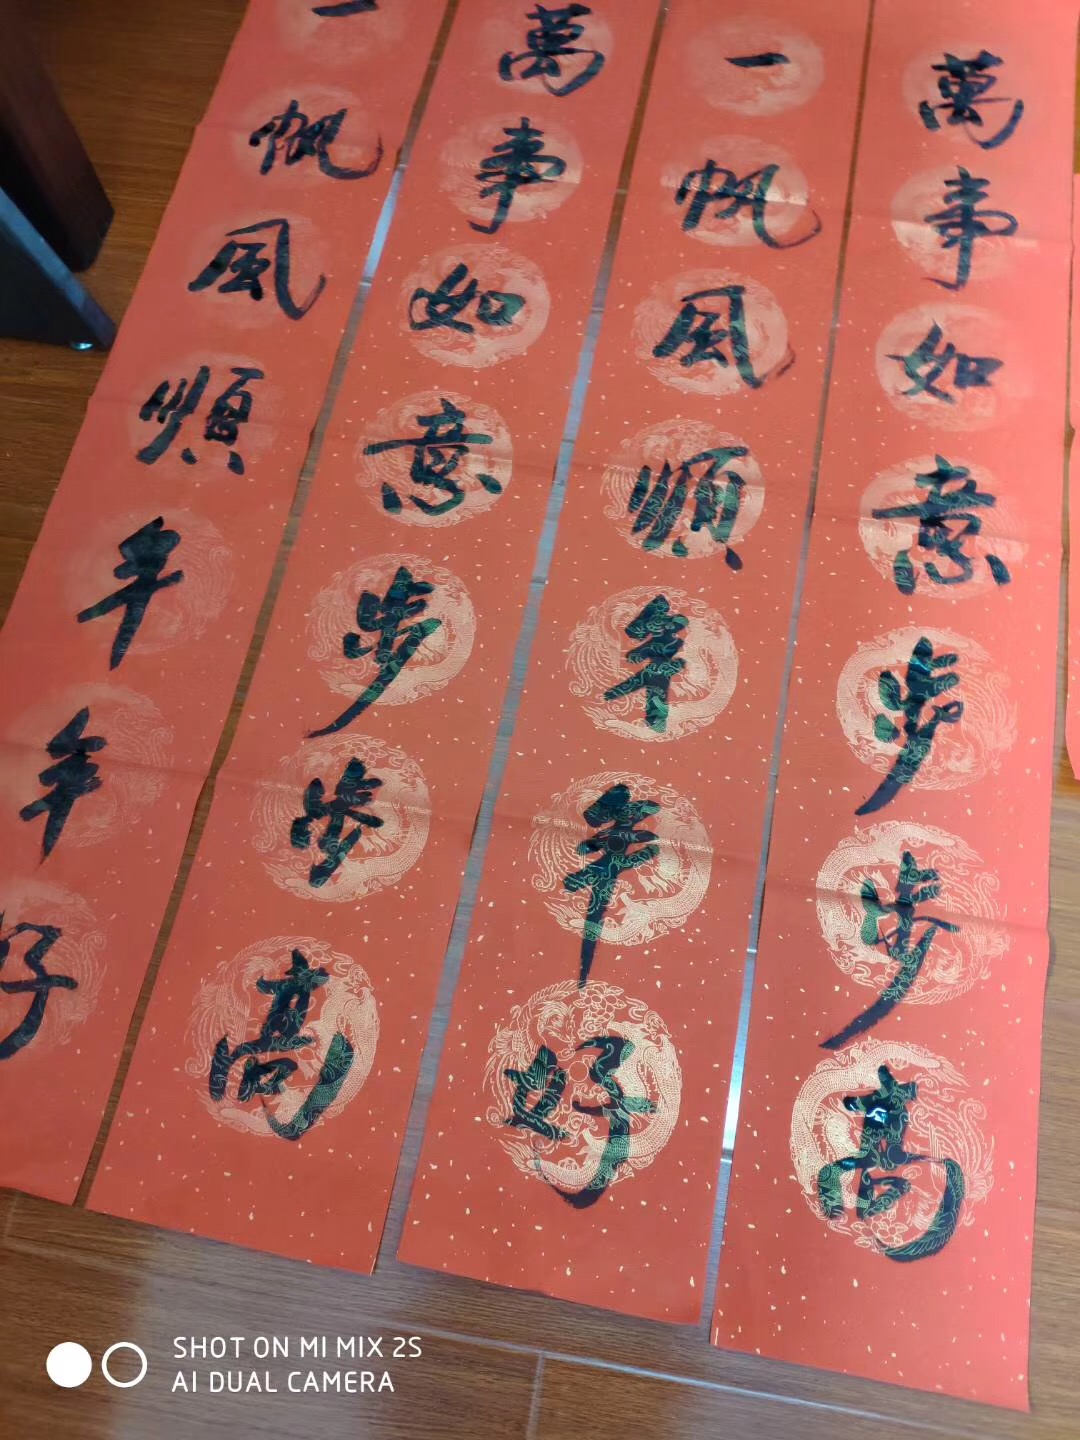 一帆風順年年好
萬事如意步步高
一帆風順年年好
萬事如意步步高
SHOT ON MI MIX 2S
AI DUAL CAMERA